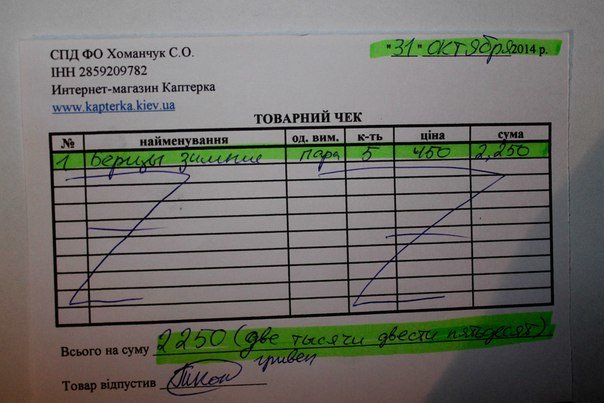 "31" октября 2014 р.
СПД ФО Хоманчук С.О.
ІНН 2859209782
Интернет-магазин Каптерка
www.kapterka.kiev.ua
ТОВАРНИЙ ЧЕК
№ найменування од. вим. к-ть ціна сума
1 Берцы зимние пара 5 450 2,250
Всього на суму 2250 (две тысячи двести пятьдесят)
гривен
Товар відпустив